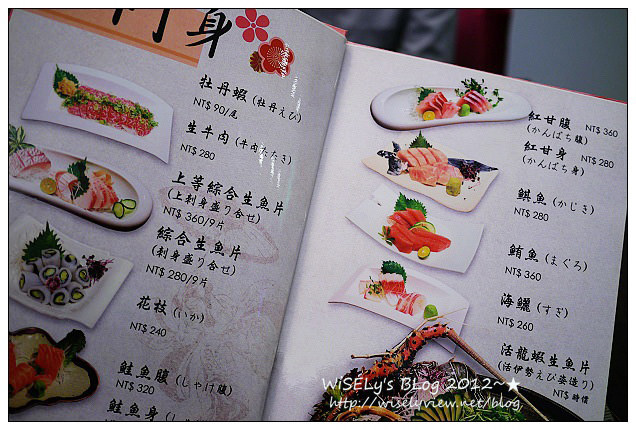 身
牡丹蝦 (牡丹えび)
NT$ 90/尾
生牛肉 (牛肉たたき)
NT$ 280
上等綜合生魚片
(上刺身盛り合せ)
NT$ 360/9片
綜合生魚片
(刺身盛り合せ)
NT$ 280/9片
花枝 (いか)
NT$ 240
鮭魚腹 (しゃけ腹)
NT$ 320
鮭魚身
紅甘腹 NT$ 360
(かんぱち腹)
紅甘身 NT$ 280
(かんぱち身)
鯕魚 (かじき)
NT$ 280
鮪魚 (まぐろ)
NT$ 360
海鱺 (すぎ)
NT$ 260
活龍蝦生魚片
(活伊勢えび姿造り)
NT$ 時價
WiSELy's Blog 2012~★
http://wiselyview.net/blog